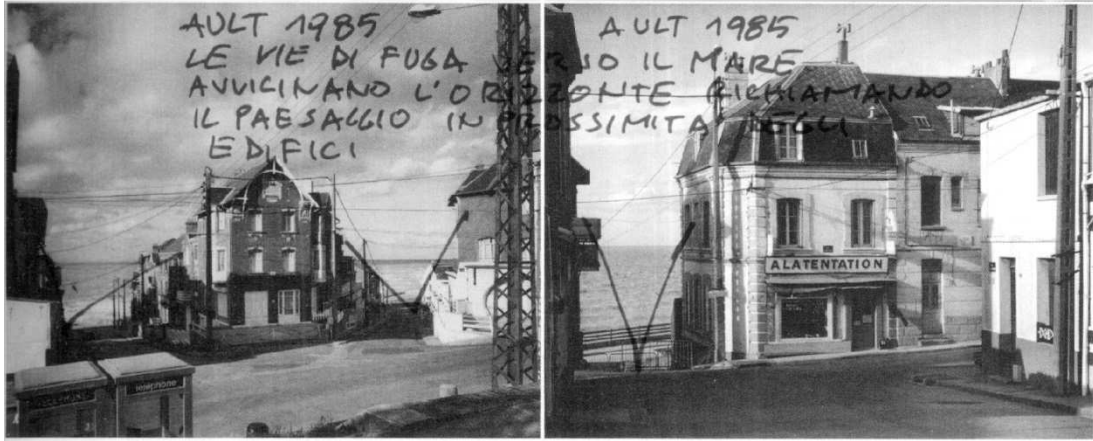 AULT 1985
LE VIE DI FUGA VERSO IL MARE
AVVICINANO L'ORIZZONTE RICHIAMANDO
IL PAESAGGIO IN PROSSIMITA' DEGLI
EDIFICI
AULT 1985
ALATENTATION
telephone